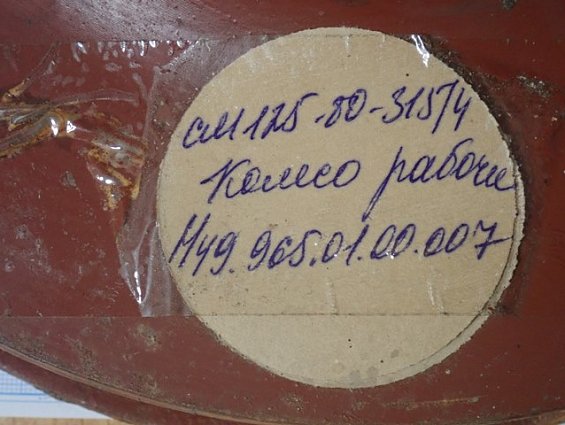 СМ 125-80-315/4
Колесо рабочее
Н49.965.01.00.007